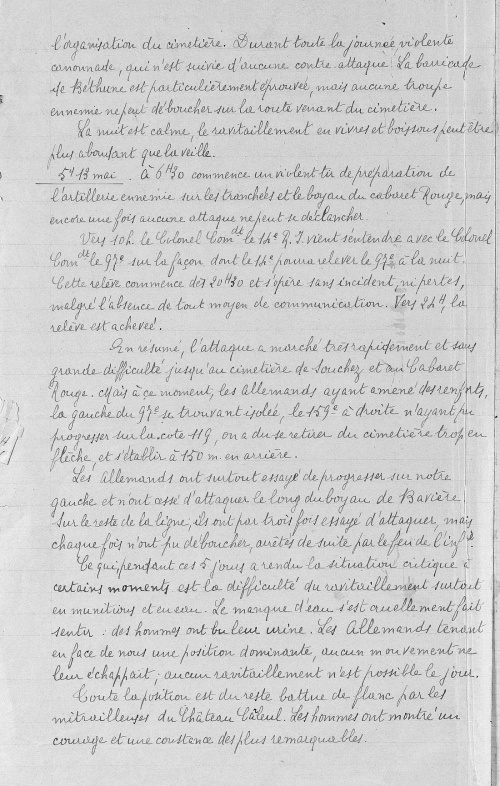 l'organisation du cimetière. Durant toute la journée, violente
canonnade, qui n'est suivie d'aucune contre attaque. La barricade
de Béthune est particulièrement éprouvée, mais aucune troupe
ennemie ne peut déboucher sur la route venant du cimetière.
La nuit est calme, le ravitaillement en vivres et boissons peut être
plus abondant que la veille.
13 mai. À 6H30 commence un violent tir de préparation de
l'artillerie ennemie sur les tranchées et le boyau du cabaret Rouge, mais
encore une fois aucune attaque ne peut se déclancher.
Vers 10h. le Colonel Comdt le 14e R.I. vient s'entendre avec le Colonel
Comdt le 97e sur la façon dont le 14e pourra relever le 97e à la nuit.
Cette relève commence dès 20H30 et s'opère sans incident, ni pertes,
malgré l'absence de tout moyen de communication. Vers 24H, la
relève est achevée.
En résumé, l'attaque a marché très rapidement et sans
grande difficulté jusqu'au cimetière de Souchez et au Cabaret
Rouge. Mais à ce moment, les Allemands ayant amené des renforts,
la gauche du 97e se trouvant isolée, le 159e à droite n'ayant pu
progresser sur la cote 119, on a du se retirer du cimetière trop en
flèche, et s'établir à 150 m. en arrière.
Les Allemands ont surtout essayé de progresser sur notre
gauche et n'ont cessé d'attaquer le long du boyau de Bavière.
Sur le reste de la ligne, ils ont par trois fois essayé d'attaquer, mais
chaque fois n'ont pu déboucher, arrêtés de suite par le feu de l'infie.
Ce qui pendant ces 5 jours a rendu la situation critique à
certains moments est la difficulté du ravitaillement surtout
en munitions et en eau. Le manque d'eau s'est cruellement fait
sentir : des hommes ont bu leur urine. Les Allemands tenant
en face de nous une position dominante, aucun mouvement ne
leur échappait ; aucun ravitaillement n'est possible le jour.
Toute la position est du reste battue de flanc par les
mitrailleuses du Château Câleul. Les hommes ont montré un
courage et une constance des plus remarquables.